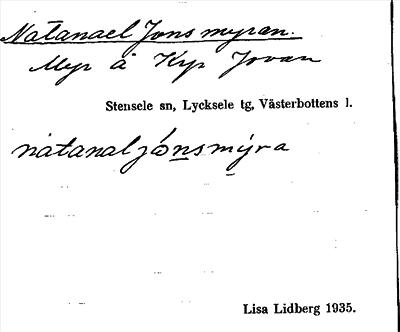 Natanael Jonsmyran.
Myr å Kyrkjovan
Stensele sn, Lycksele tg, Västerbottens l.
natanal jónsmýra
Lisa Lidberg 1935.